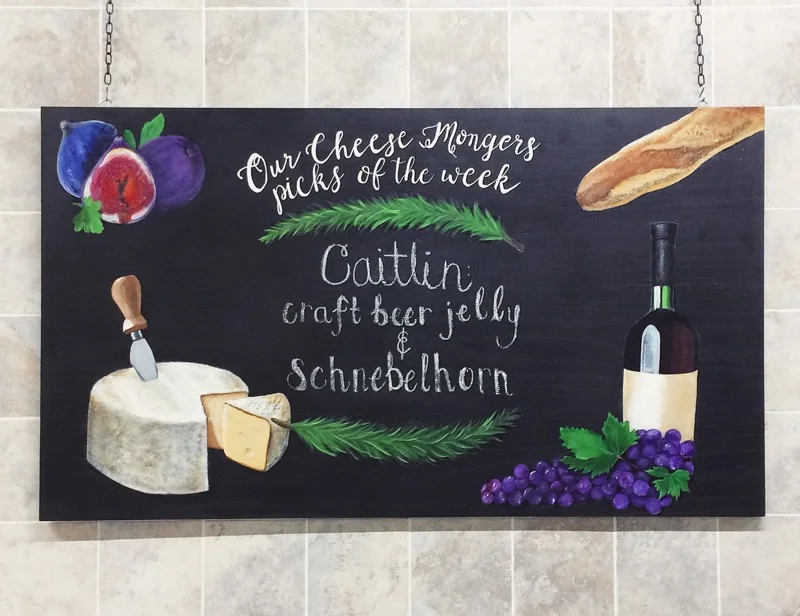 Our Cheese Mongers
picks of the week
Caitlin:
craft beer jelly
&
Schnebelhorn